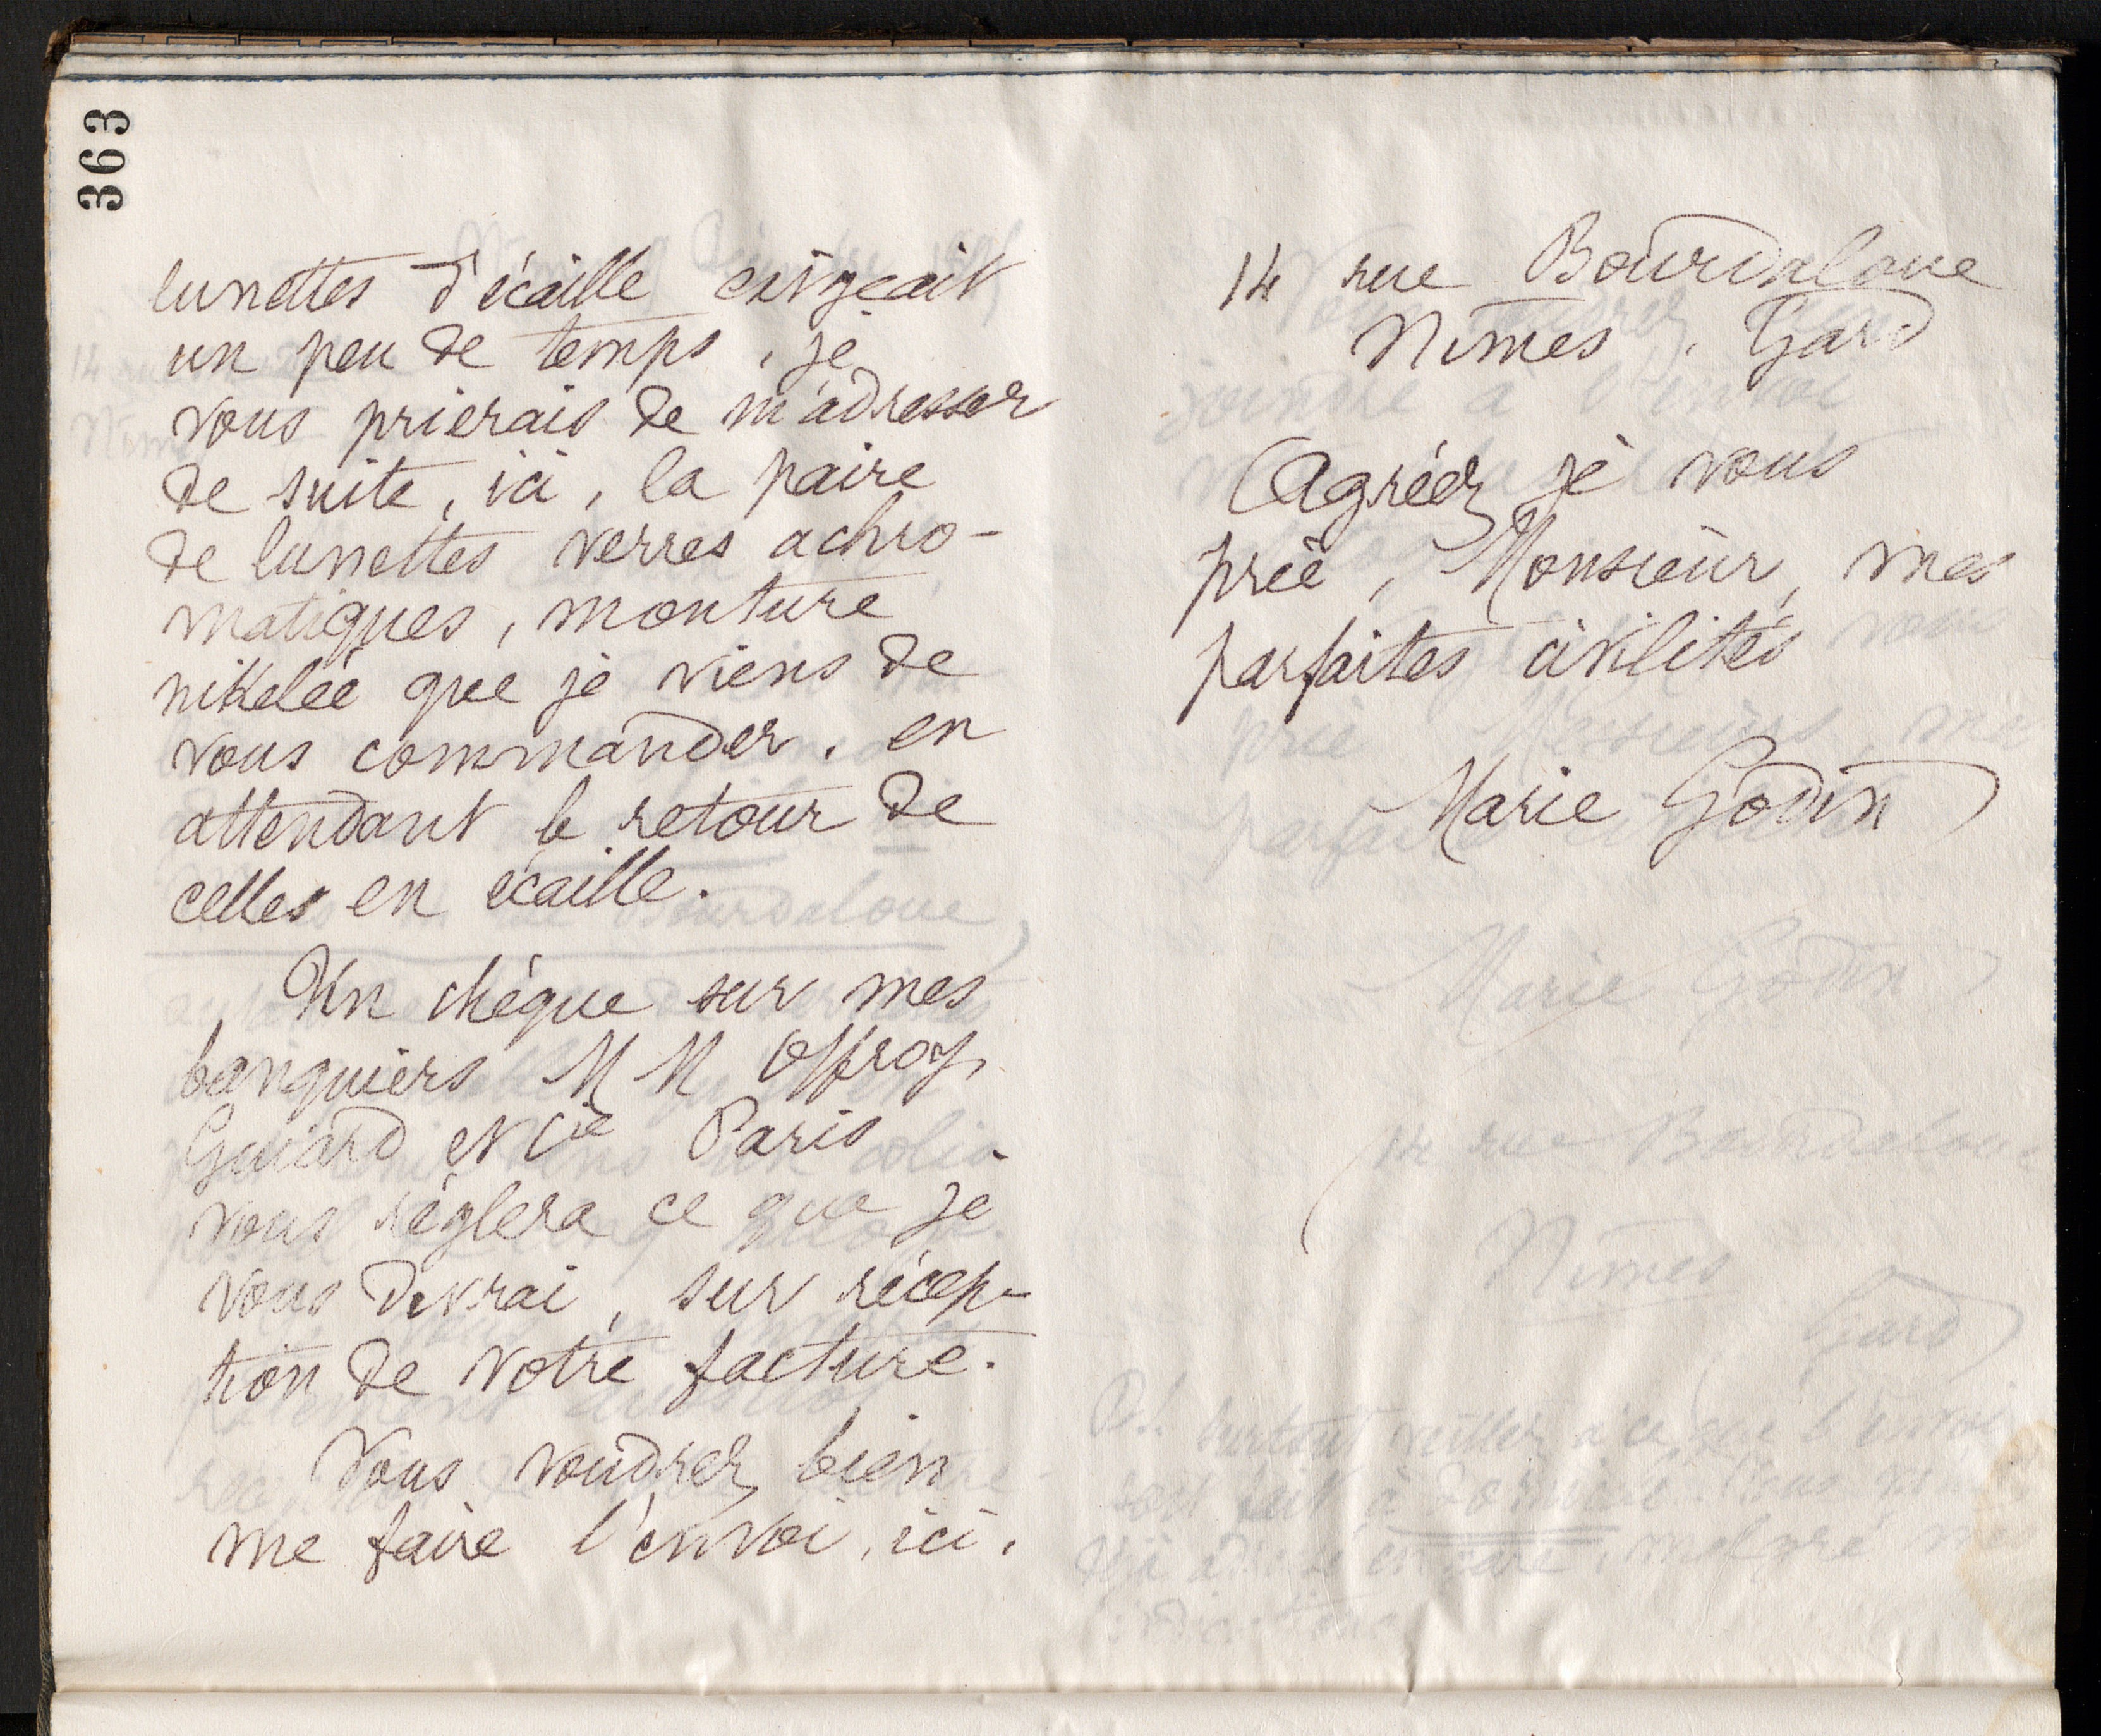 363
lunettes d'écaille exigeait
un peu de temps, je
vous prierais de m'adresser
de suite, ici, la paire
de lunettes verres achro-
matiques, monture
nikelée que je viens de
vous commander. en
attendant le retour de
celles en écaille.
Un chèque sur mes
banquiers M M Offroy,
Guiard et Cie Paris
vous règlera ce que je
vous devrai, sur récep-
tion de votre facture.
Vous voudrez bien
me faire l'envoi, ici,
14 rue Bourdaloue
Nîmes, Gard
Agréez je vous
prie, Monsieur, mes
parfaites civilités
Marie Godin